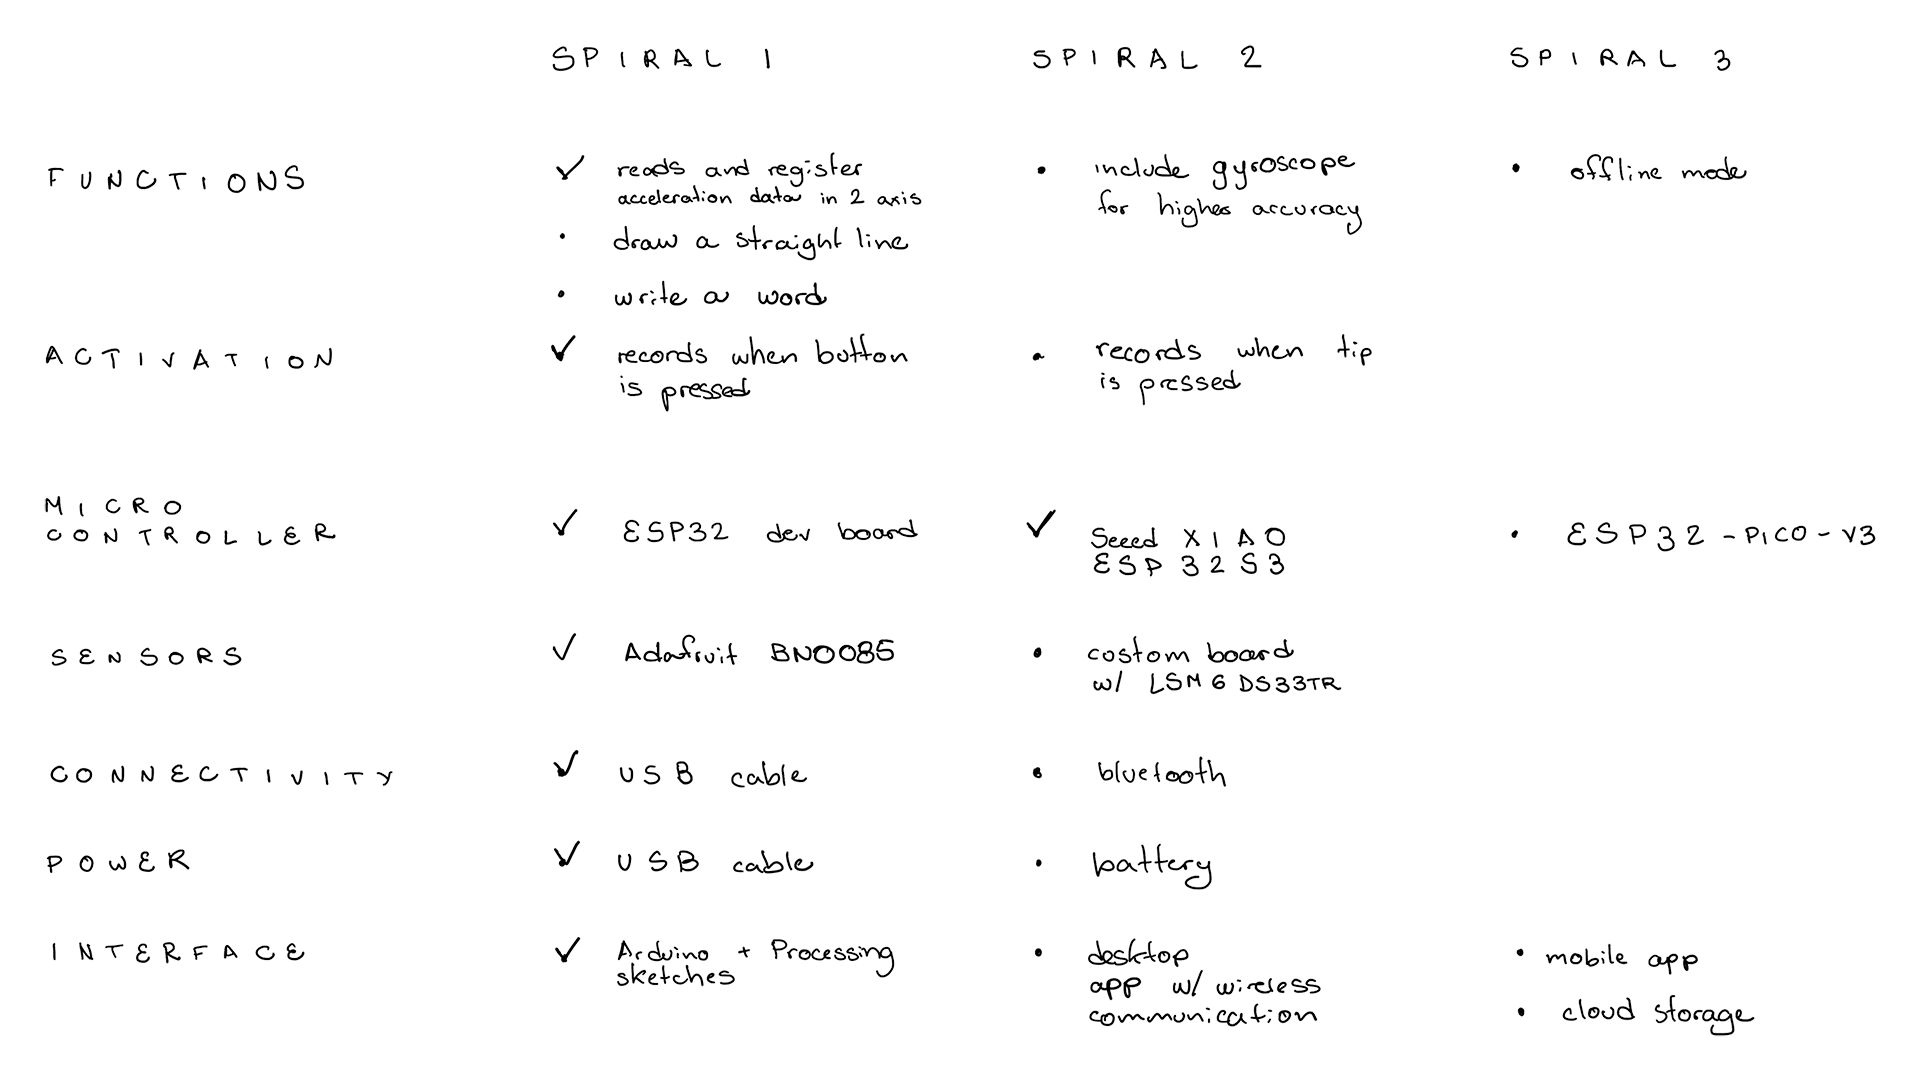 SPIRAL 1 SPIRAL 2 SPIRAL 3
FUNCTIONS
✓ reads and register
acceleration data in 2 axis
• draw a straight line
• write a word
• include gyroscope
for higher accuracy
• offline mode
ACTIVATION
✓ records when button
is pressed
• records when tip
is pressed
MICRO
CONTROLLER
✓ ESP32 dev board
✓ Seeed XIAO
ESP32S3
• ESP32-PICO-V3
SENSORS
✓ Adafruit BNO085
• custom board
w/ LSM6DS33TR
CONNECTIVITY
✓ USB cable
• bluetooth
POWER
✓ USB cable
• battery
INTERFACE
✓ Arduino + Processing
sketches
• desktop
app w/ wireless
communication
• mobile app
• cloud storage